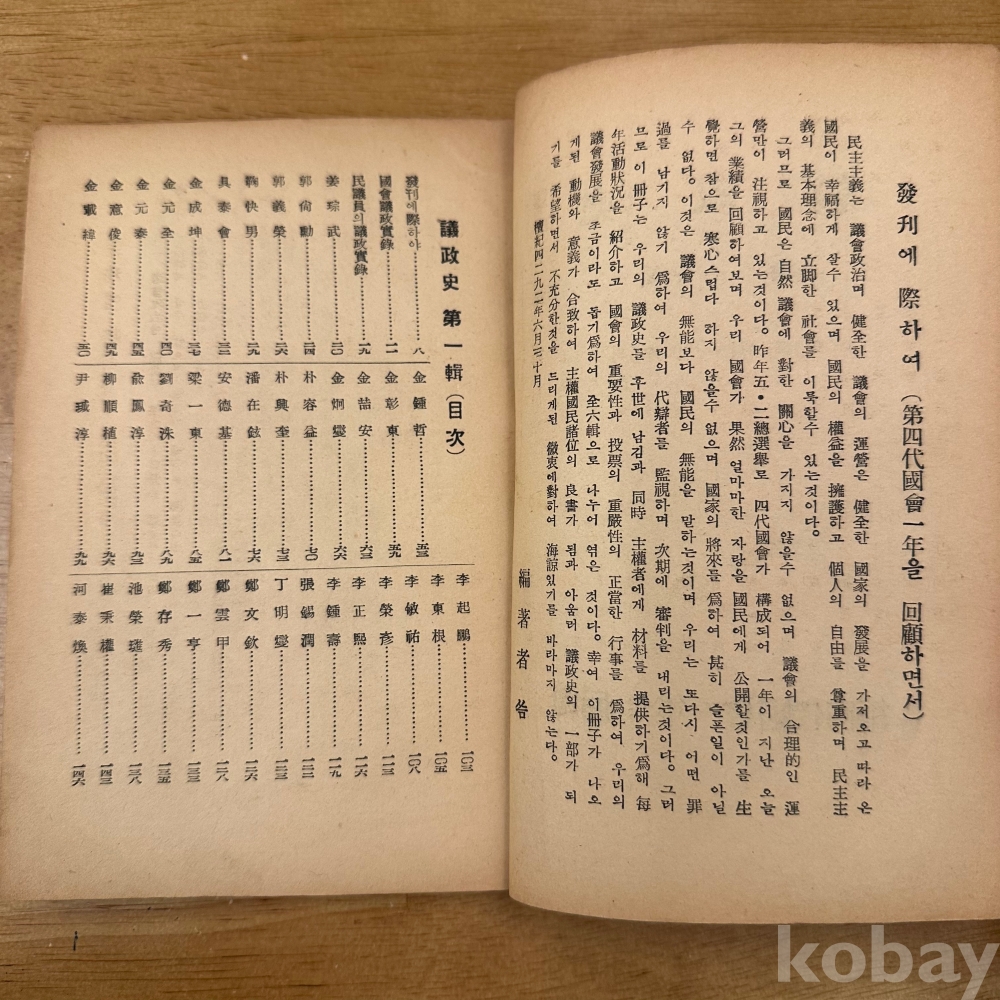 發刊에 際하여 (第四代國會一年을 回顧하면서)
民主主義는 議會政治며 健全한 議會의 運營은 健全한 國家의 發展을 가저오고 따라 온
國民이 幸福하게 살수 있으며 國民의 權益을 擁護하고 個人의 自由를 尊重하며 民主主
義의 基本理念에 立脚한 社會를 이룩할수 있는것이다.
그러므로 國民은 自然 議會에 對한 關心을 가지지 않을수 없으며 議會의 合理的인 運
營만이 注視하고 있는것이다. 昨年五•二總選擧로 四代國會가 構成되어 一年이 지난 오늘
그의 業績을 回顧하여보며 우리 國會가 果然 얼마마한 자랑을 國民에게 公開할것인가를 生
覺하면 참으로 寒心스럽다 하지 않을수 없으며 國家의 將來를 爲하여 甚히 슬픈일이 아닐
수 없다. 이것은 議會의 無能보다 國民의 無能을 말하는것이며 우리는 또다시 어떤 罪
過를 남기지 않기 爲하여 우리의 代辯者를 監視하며 次期에 審判을 내리는것이다. 그러
므로 이 冊子는 우리의 議政史를 후世에 남김과 同時 主權者에게 材料를 提供하기爲해 每
年活動狀況을 紹介하고 國會의 重要性과 投票의 重嚴性의 正當한 行事를 爲하여 우리의
議會發展을 조금이라도 돕기爲하여 全六輯으로 나누어 엮은 것이다. 幸여 이冊子가 나오
게된 動機와 意義가 合致하여 主權國民諸位의 良書가 됨과 아울러 議政史의 一部가 되
기를 希望하면서 不充分한것을 드리게된 微衷에對하여 海諒있기를 바라마지 않는다.
檀紀四二九二年六月三十月
編著者告
議政史 第一輯 (目次)
發刊에際하야……八
國會議政實錄……一一
民議員의議政實錄……一九
姜琮武……二〇
郭尙勳……二四
郭義榮……二六
鞠快男……二九
具泰會……三二
金成坤……三七
金元全……四〇
金元泰……四五
金意俊……四九
金載緯……五〇
金鍾哲……五三
金彰東……五九
金喆安……六三
金炯燮……六六
朴容益……七〇
朴興奎……七三
潘在鉉……七六
安德基……八一
梁一東……八五
劉奇洙……八九
兪鳳淳……九三
柳順植……九六
尹珹淳……九九
李起鵬……一〇三
李東根……一〇五
李敏祐……一〇八
李榮彦……一一三
李正熙……一一六
李鍾壽……一一九
張錫潤……一二二
丁明燮……一二三
鄭文欽……一二六
鄭雲甲……一二八
鄭一亨……一三三
鄭存秀……一三五
池榮璡……一三八
崔秉權……一四三
河泰煥……一四六
kobay